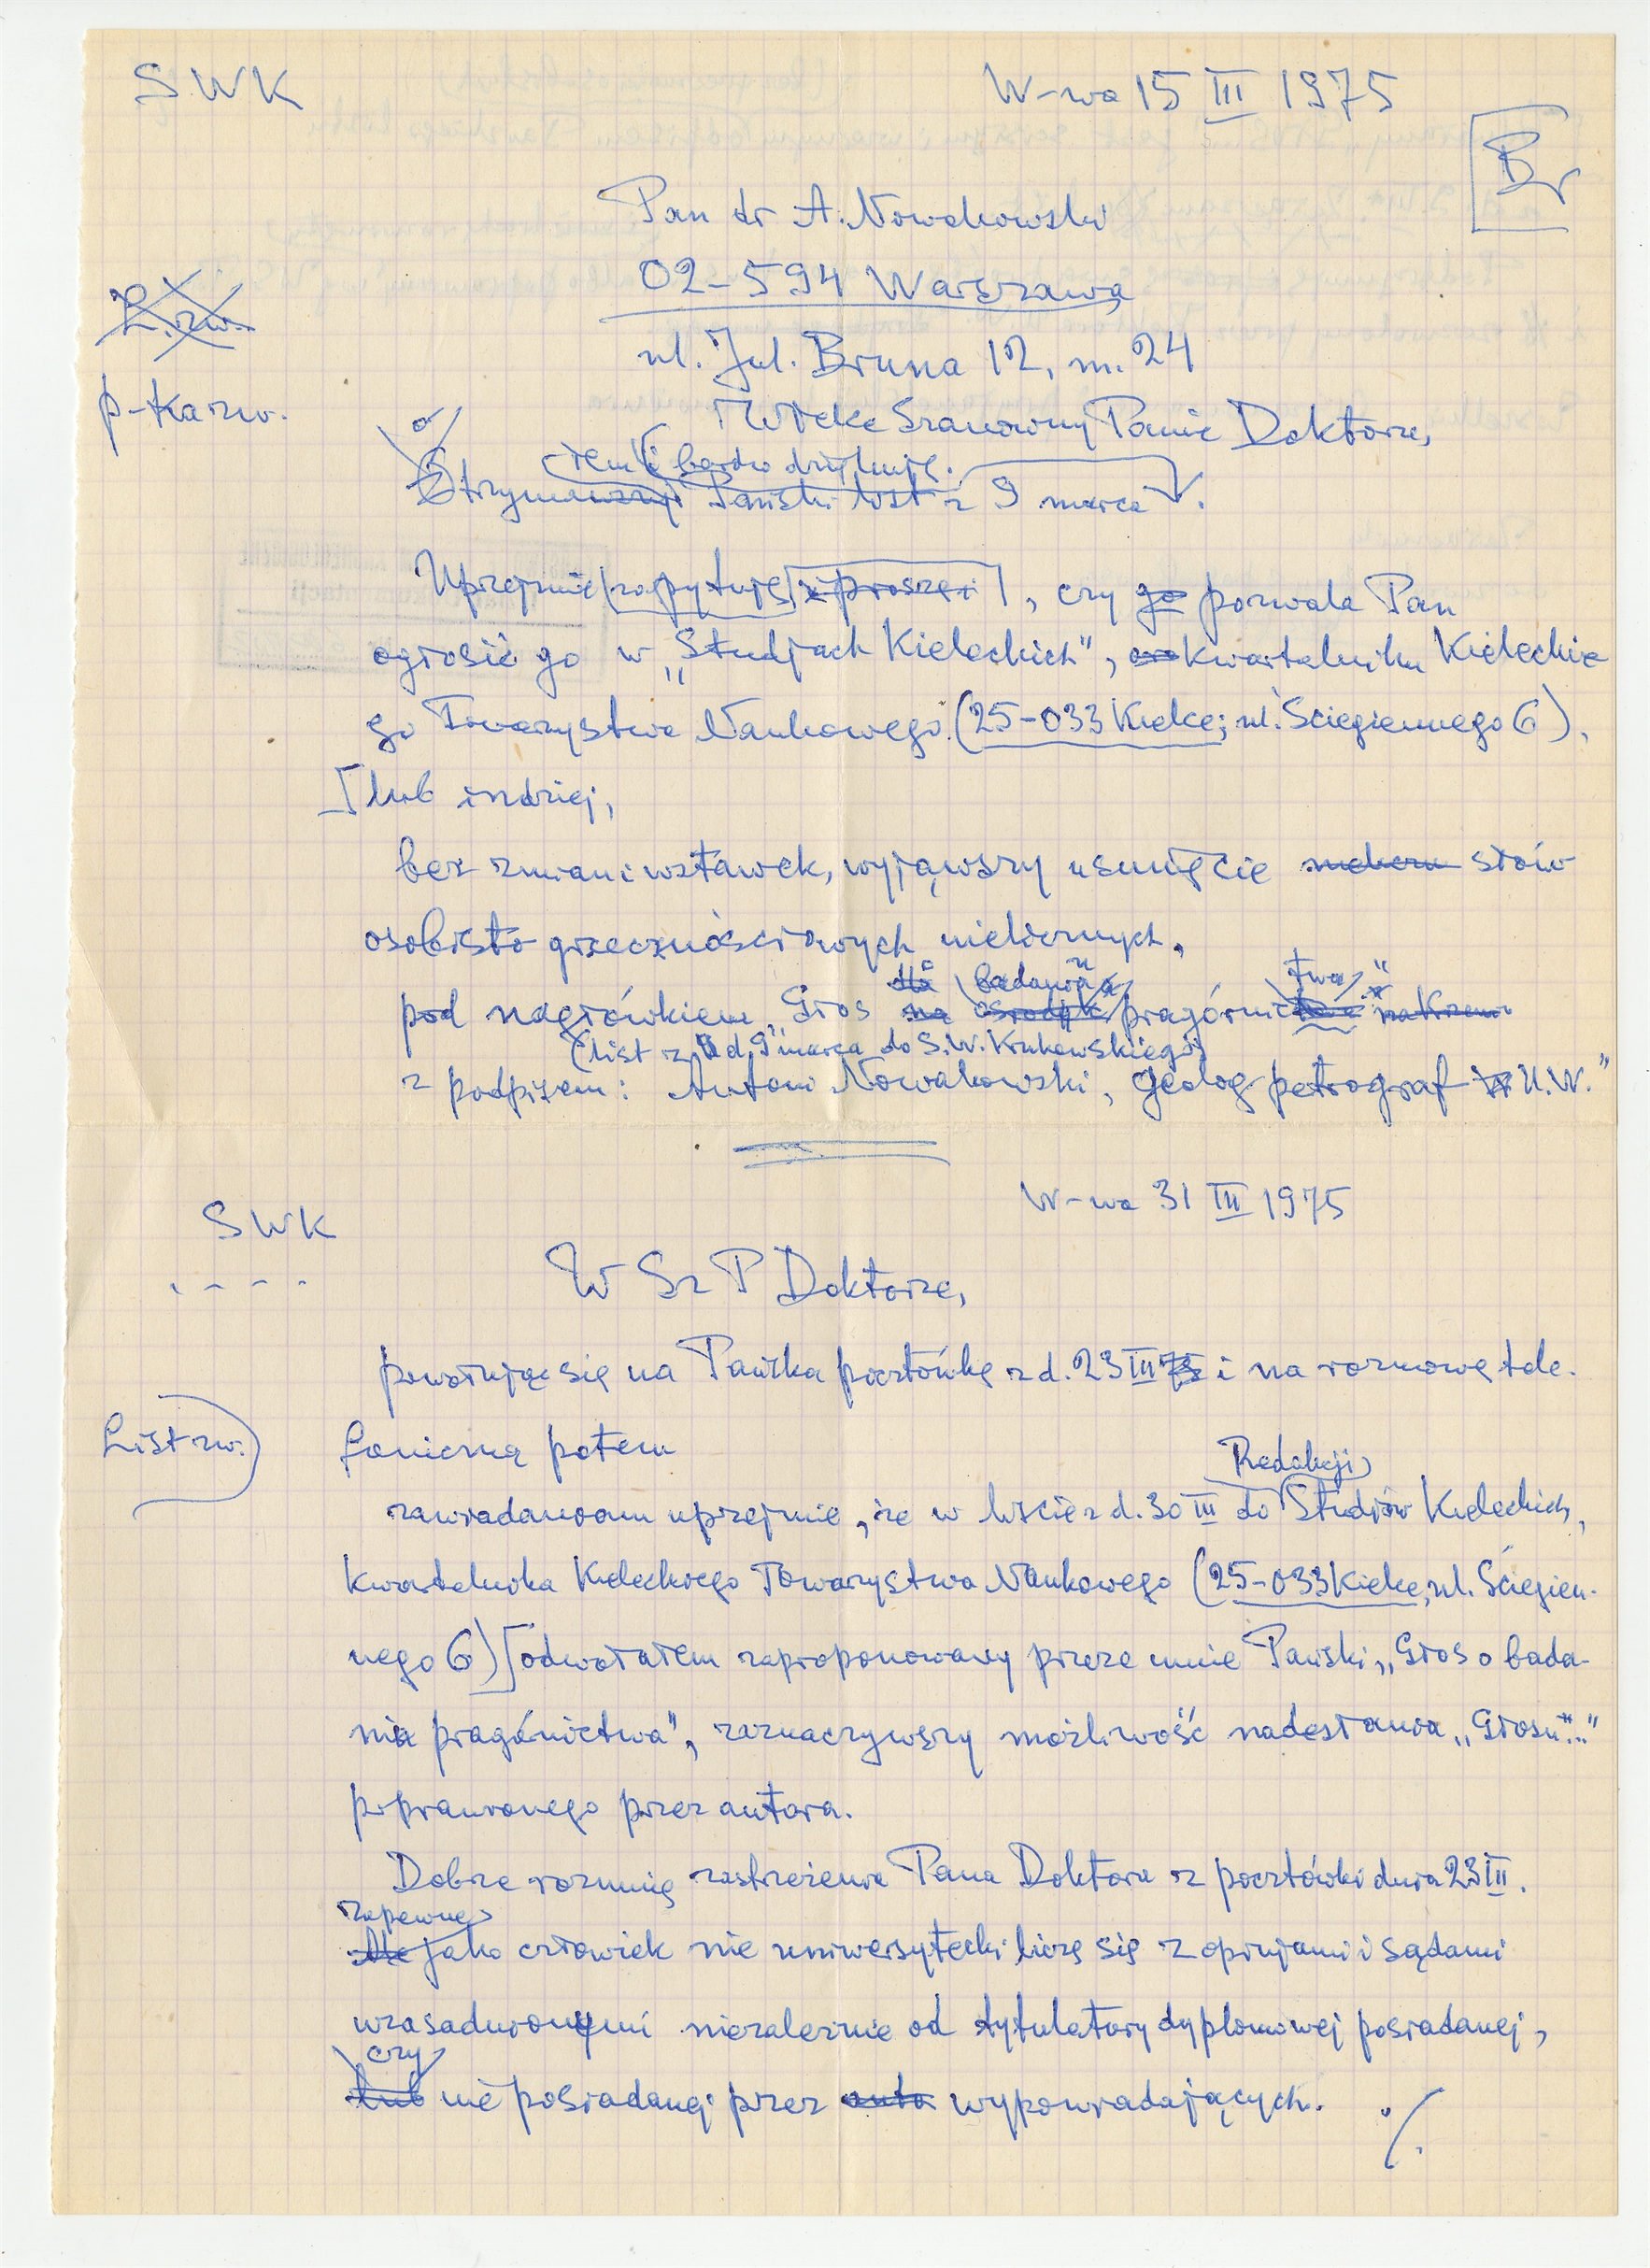 SWK
W-wa 15 III 1975
Br
Pan dr A. Nowakowski
02-594 Warszawa
L. zw.
ul. Jul. Bruna 12, m. 24
p-tka zw.
Wielce Szanowny Panie Doktorze,
o łem i bardzo dziękuję.
Otrzymawszy Pański list z 9 marca.
Uprzejmie zapytuję i proszę, czy go pozwala Pan
ogłosić go w „Studjach Kieleckich", kwartalniku Kieleckie
go Towarzystwa Naukowego (25-033 Kielce; ul. Ściegiennego 6),
lub indziej,
bez zmian i wstawek, wyjąwszy usunięcie słów
osobisto grzecznościowych nielicznych,
dla badania twa"
pod nagłówkiem „Głos na pragórnic
(list z d. 9 marca do S.W. Krukowskiego)
z podpisem: Antoni Nowakowski, geolog petrograf U.W."
W-wa 31 III 1975
SWK
W Sz P Doktorze,
powołując się na Pańską pocztówkę z d. 23 III 75 i na rozmowę tele-
List zw.
foniczną potem
Redakcji
zawiadamiam uprzejmie, że w liście z d. 30 III do Studjów Kieleckich,
kwartalnika Kieleckiego Towarzystwa Naukowego (25-033 Kielce, ul. Ściegien-
nego 6) odwołałem zaproponowany przeze mnie Pański „Głos o bada-
nia pragórnictwa", zaznaczywszy możliwość nadesłania „Głosu..."
poprawionego przez autora.
Dobrze rozumię zastrzeżenia Pana Doktora z pocztówki dnia 23 III.
zapewne
Ale jako człowiek nie uniwersytecki liczę się z opinjami i sądami
uzasadnionymi niezależnie od tytulatury dyplomowej posiadanej,
czy
lub nie posiadanej przez auto wypowiadających.
./.